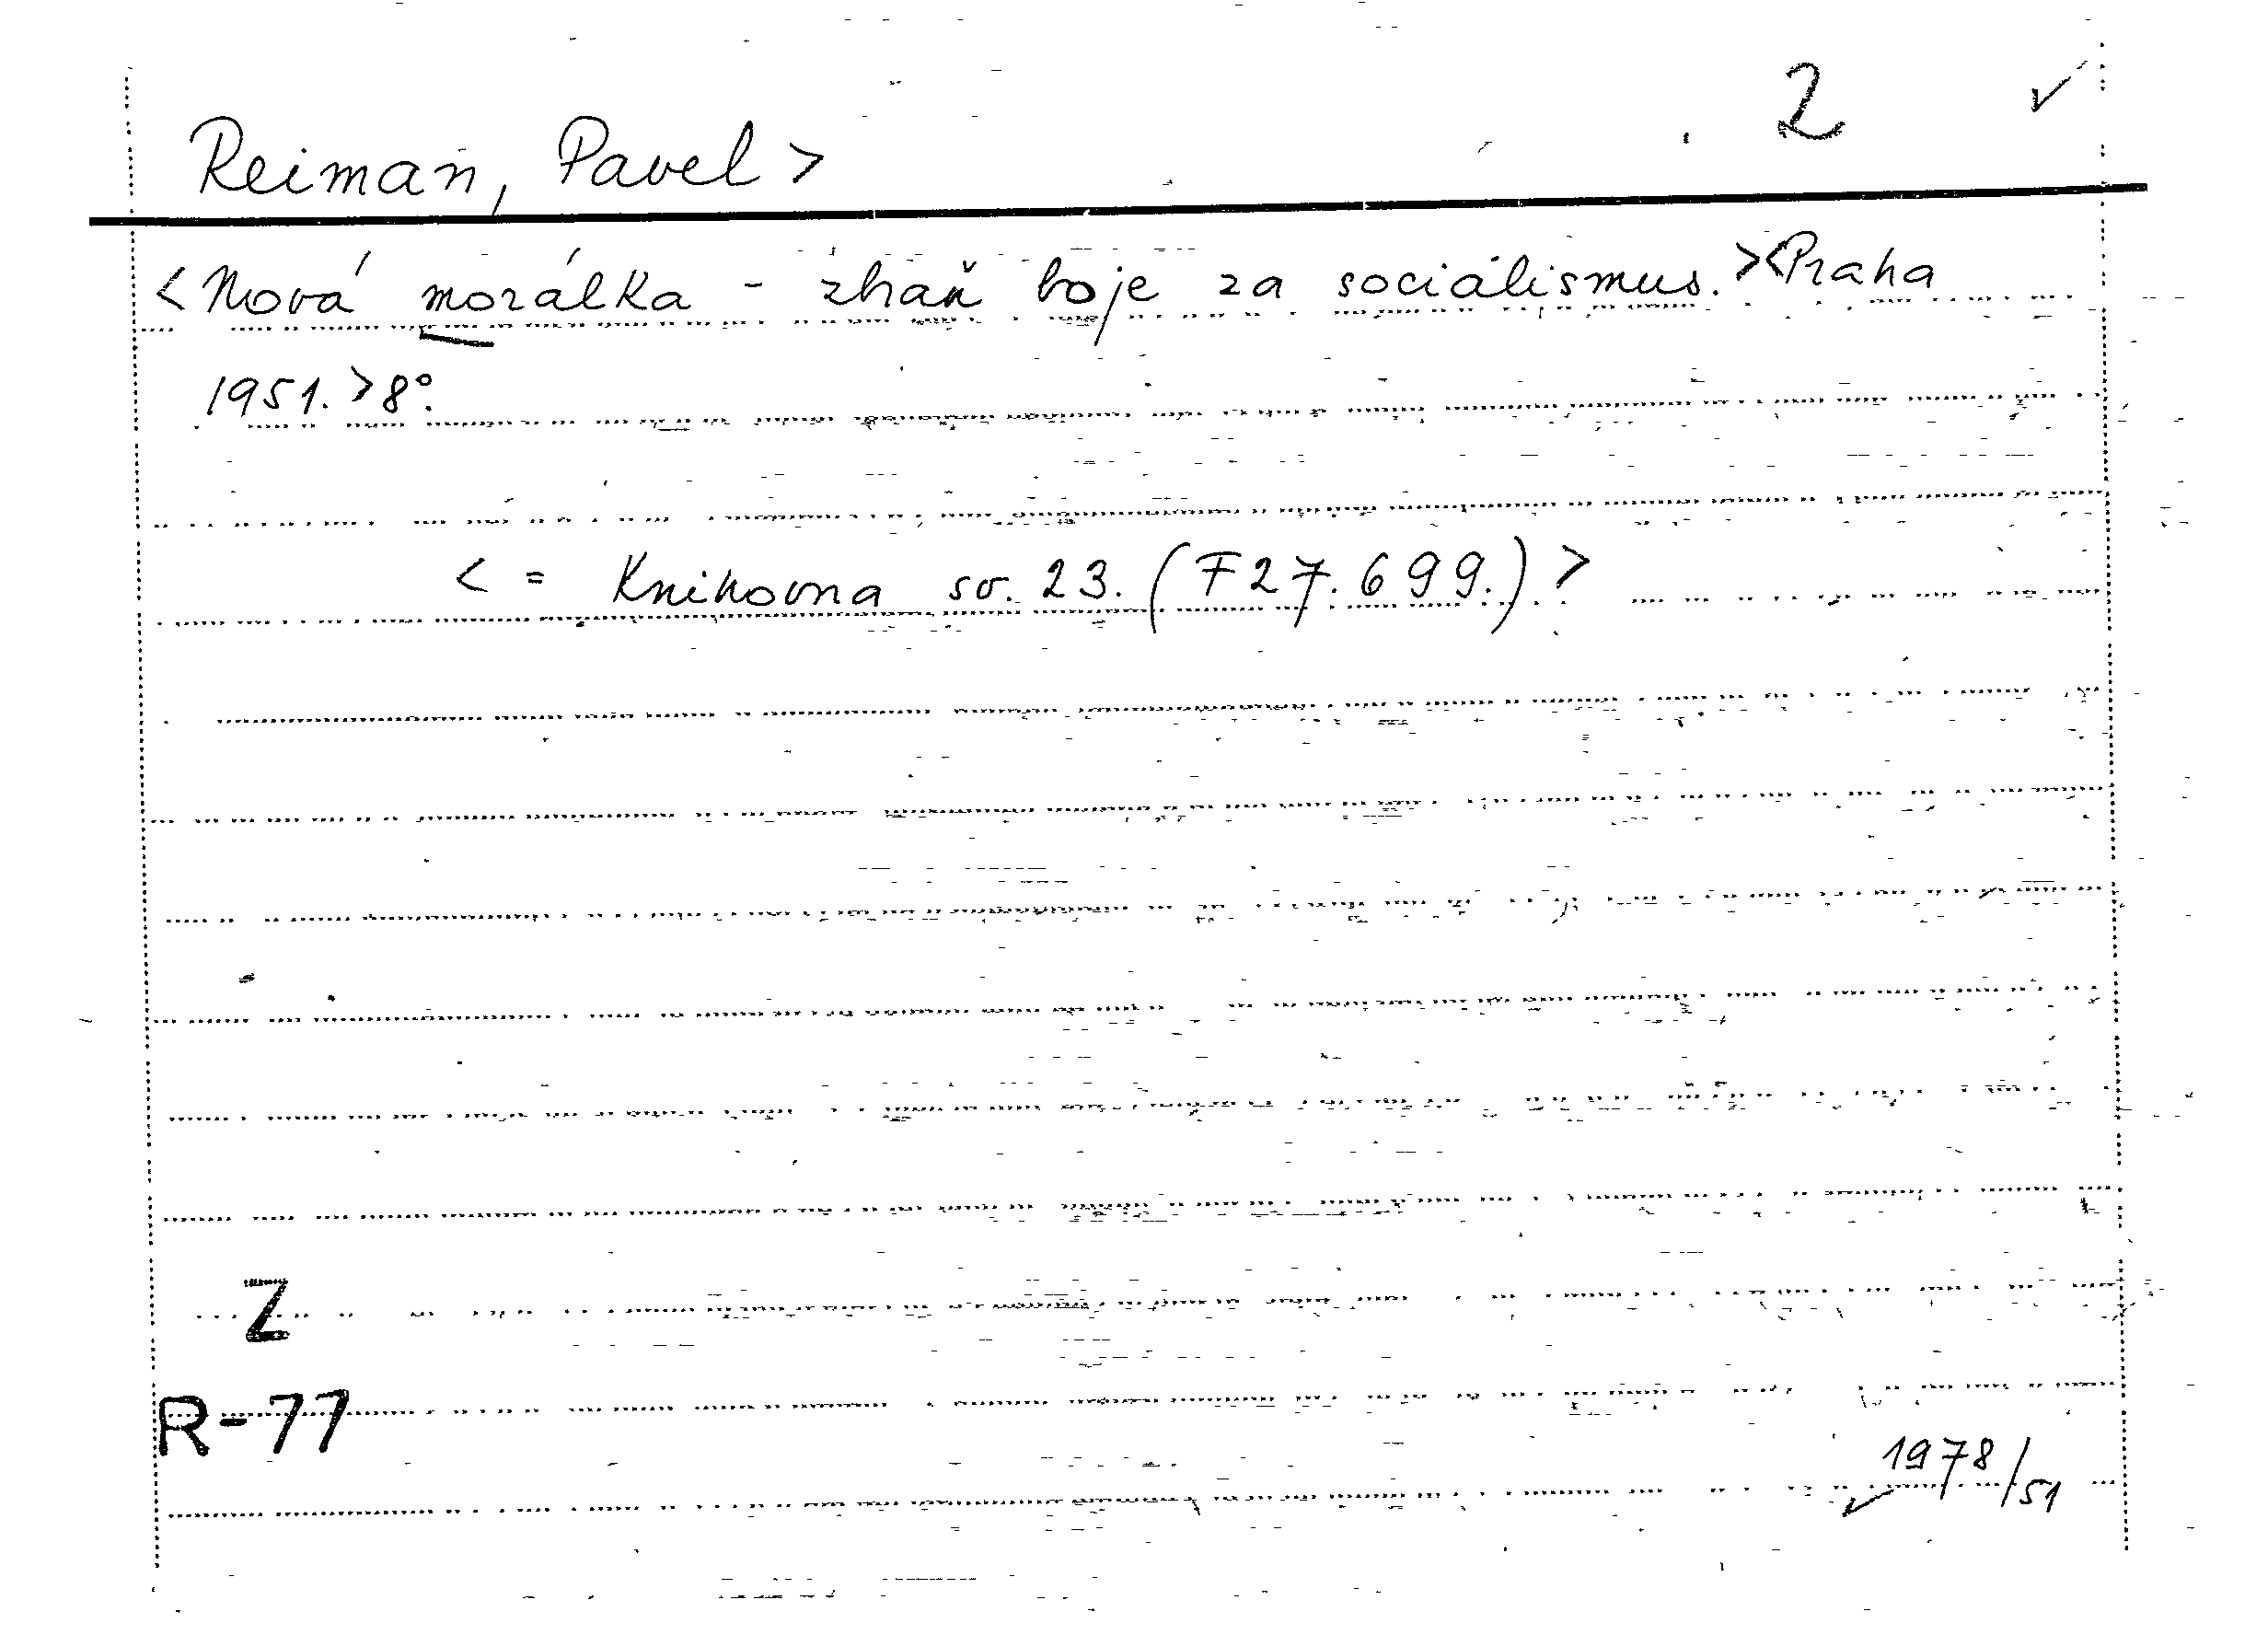 2 ✓
Reiman, Pavel >
< Nová morálka - zbraň boje za sociálismus. > < Praha
1951. > 8°.
< = Knihovna sv. 23. (F27.699.) >
Z
R-77
1978/51